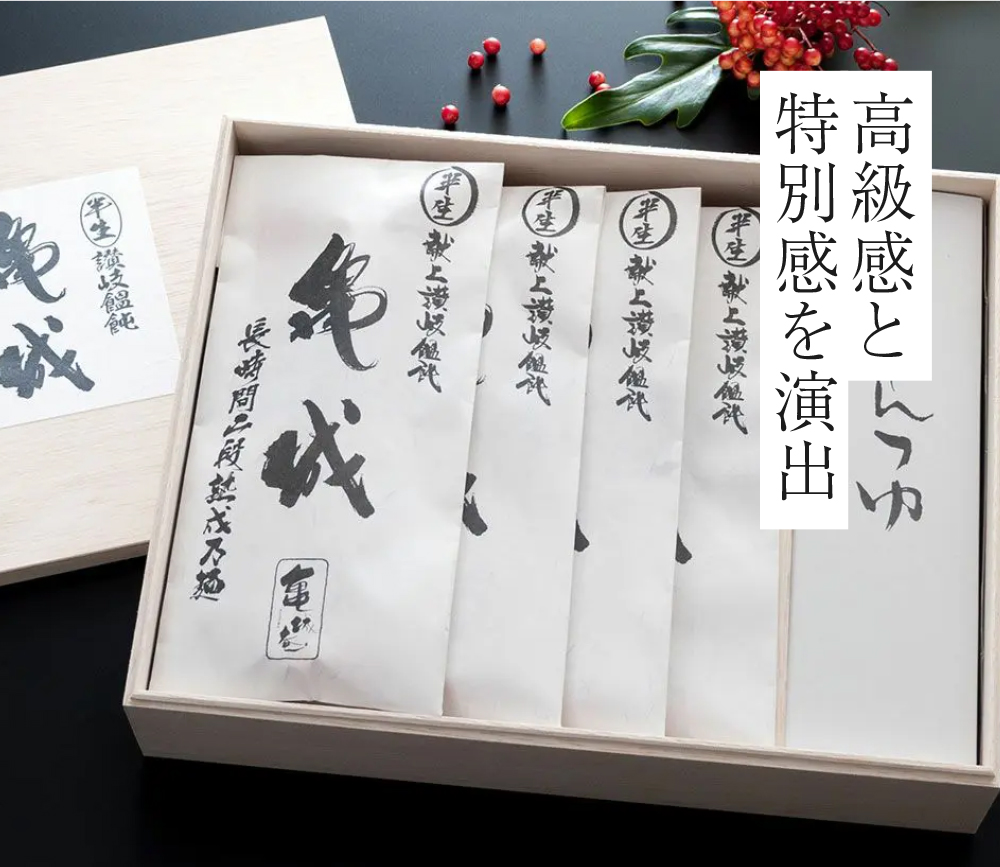 高級感と
特別感を演出
半生
讃岐饂飩
亀城
半生
献上讃岐饂飩
亀城
長時間二段熟成乃麺
亀城庵
半生
献上讃岐饂飩
半生
献上讃岐饂飩
半生
献上讃岐饂飩
んつゆ